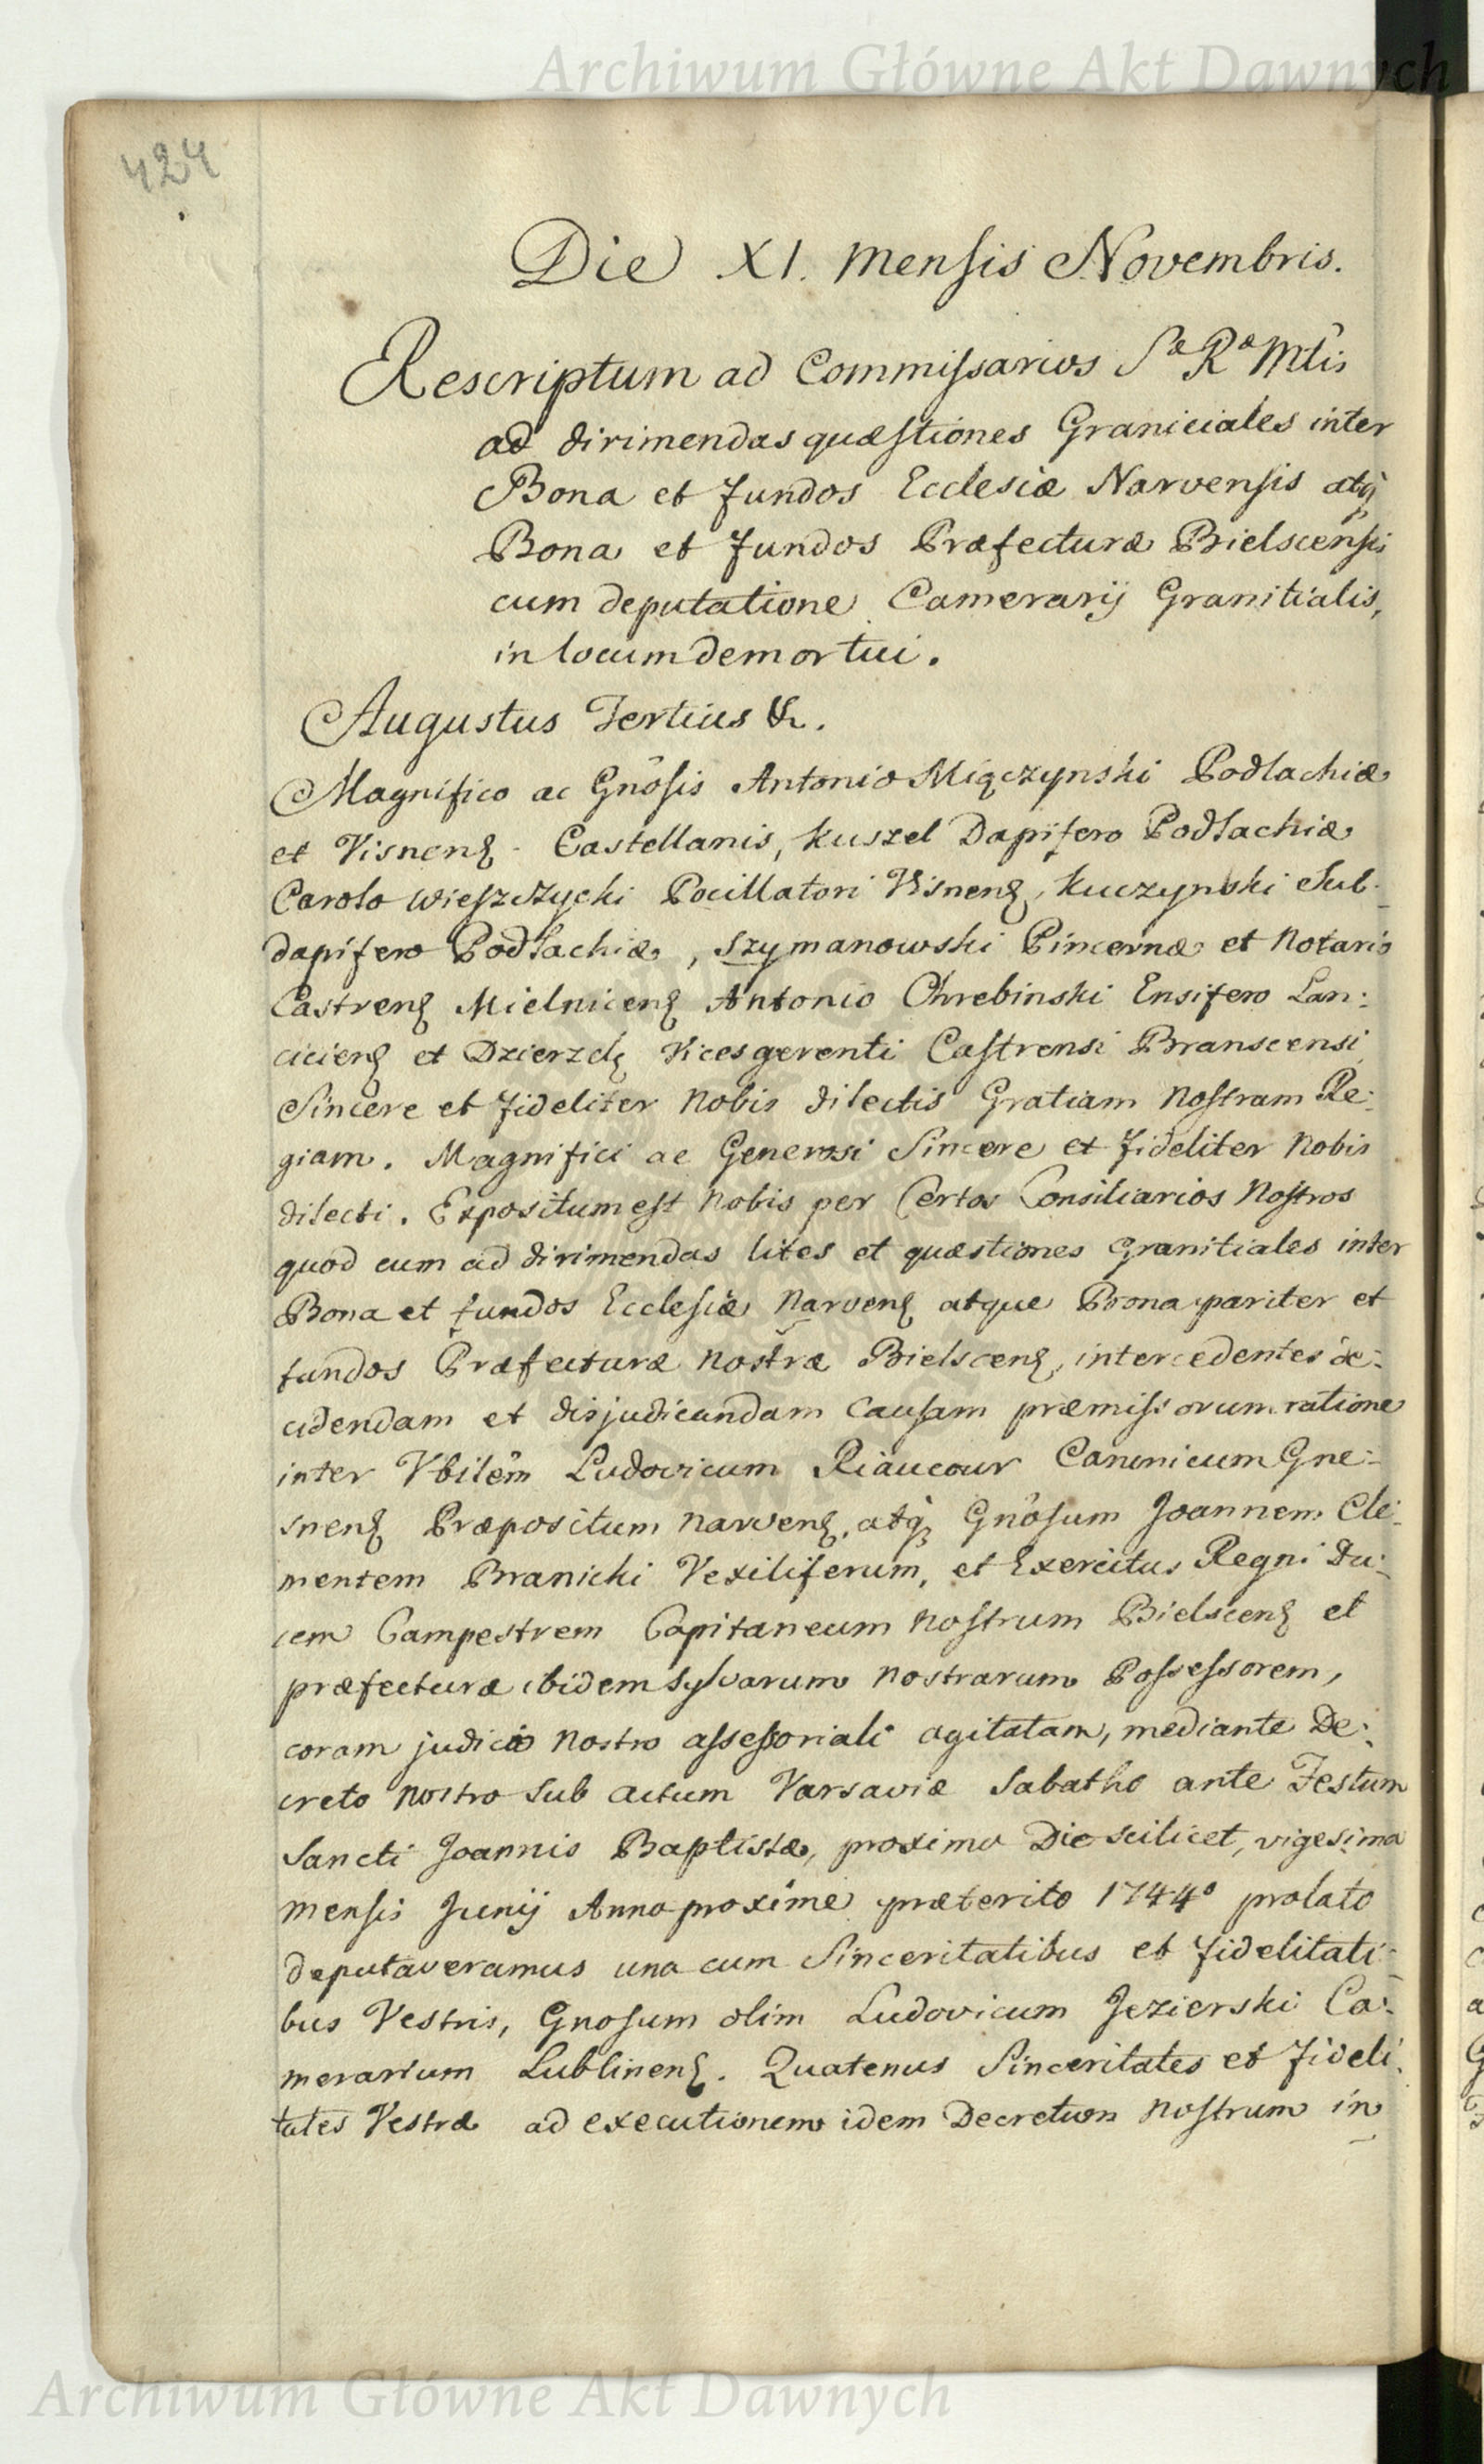 Archiwum Główne Akt Dawnych
424
Die XI. Mensis Novembris.
Rescriptum ad Commissarios Sæ Ræ Mtis
ad dirimendas quæstiones Graniciales inter
Bona et fundos Ecclesiæ Narvensis atq
Bona et fundos Præfecturæ Bielscensis
cum deputatione Camerarij Granitialis,
in locum demortui.
Augustus Tertius &.
Magnifico ac Gnosis Antonio Miączynski Podlachiæ
et Visnens Castellanis, Kuszel Dapifero Podlachiæ
Carolo Wieszczycki Pocillatori Visnens, Kuczynski Sub-
dapifero Podlachiæ, Szymanowski Pincernæ et Notario
Castrens Mielnicens Antonio Chrebinski Ensifero Lan:
ciciens et Dzierzek Vicesgerenti Castrensi Branscensi
Sincere et fideliter Nobis dilectis Gratiam Nostram Re:
giam. Magnifici ac Generosi Sincere et fideliter Nobis
dilecti. Expositum est Nobis per Certos Consiliarios Nostros
quod cum ad dirimendas lites et quæstiones Granitiales inter
Bona et fundos Ecclesiæ Narvens atque Bona pariter et
fundos Præfecturæ Nostræ Bielscens, intercedentes de:
cidendam et disjudicandam Causam præmissorum ratione
inter Vbilem Ludovicum Riaucour Canonicum Gne:
snens Præpositum Narvens, atq Gnosum Joannem Cle:
mentem Branicki Vexiliferum, et Exercitus Regni Du:
cem Campestrem Capitaneum Nostrum Bielscens et
præfecturæ ibidem Sylvarum Nostrarum Possessorem,
coram judicio Nostro assessoriali agitatam, mediante De:
creto Nostro sub actum Varsaviæ Sabatho ante Festum
Sancti Joannis Baptistæ, proximo Die scilicet, vigesima
mensis Junij Anno proxime præterito 1744º prolato
deputaveramus una cum Sinceritatibus et fidelitati:
bus Vestris, Gnosum olim Ludovicum Jezierski Ca:
merarium Lublinens. Quatenus Sinceritates et Fideli:
tates Vestræ ad executionem idem Decretum Nostrum in
Archiwum Główne Akt Dawnych